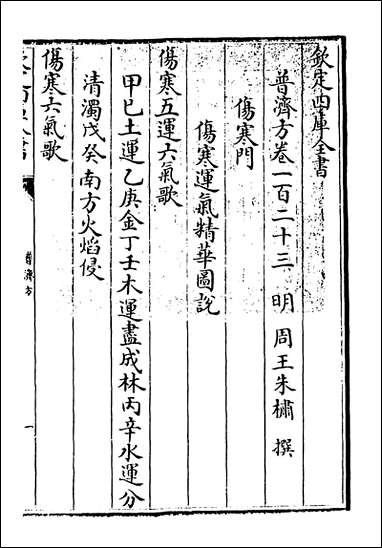 欽定四庫全書
普濟方卷一百二十三　明　周王朱橚　撰
傷寒門
傷寒運氣精華圖說
傷寒五運六氣歌
甲已土運乙庚金丁壬木運盡成林丙辛水運分
清濁戊癸南方火熖侵
傷寒六氣歌
普濟方
一